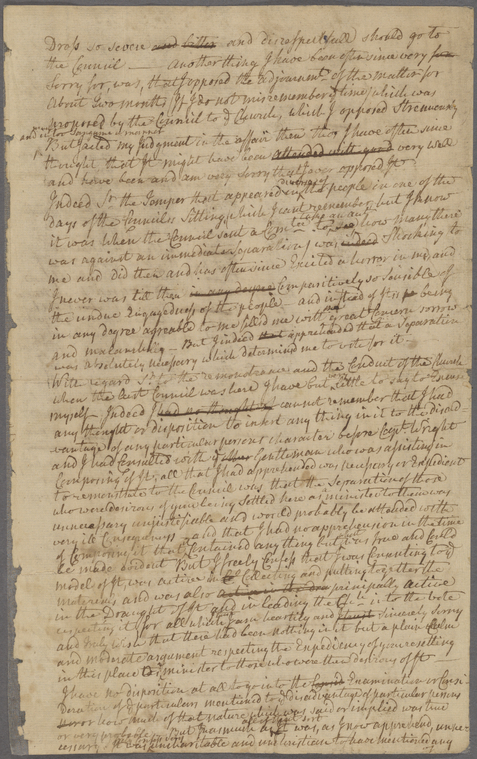 Dross so severe and bitter and disrespectfull should go to
the Council — Another thing I have been ever since very
Sorry for, was, that I opposed the Adjournmt. of the matter for
about two months (If I do not misremember ye time) which was
proposed by the Council to ye Church, which I opposed Strenuously
and it for Sometime
But acted my Judgment in the affair then tho' I have often since
thought that It might have been attended with good very well
and have been and am very Sorry that I ever opposed It
Indeed Sr. the Temper that appeared in the people in one of the
days of the Councils Sitting which I cant remember, but I know
it was when the Council sent a Comtee to how many there
was against an immediate Separation, was indeed Shocking to
me and did then and has often since Excited a horror in me, and
I never was till then in any degree Comparitively so sensible of
the undue Engagedness of the people — and instead of Its being
in any degree agreable to me filled me with great Concern sorrow
and melancholy — But I indeed that apprehended that a Separation
was absolutely necessary which determined me to vote for it.
With regard Sr. to the remonstrance and the Conduct of the Church
when the last Council was here I have but little to say to Excuse
myself, Indeed I had no thought cannot remember that I had
any thought or disposition to insert any thing in it to the disad-
vantage of any particular persons character before Capt. Wright
and I had Consulted with ye other Gentleman who was assisting in
Composing of It, all that I had apprehended was necessary or Expedient
to remonstrate to the Council was that the Separation of those
who were desirous of your being Settled here as minister to them was
unnecessary unjustifiable and would probably be attended with
very ill Consequences and that I had no apprehension in the time
of Composing it that it Contained any thing but was true and Could
be made evident But I freely Confess that I was Consenting to ye
model of It, was active in ye Collecting and putting together the
materials and was also principally Active
in the Draught of It and in leading the Chh in to the vote
respecting it for all which I am heartily and sincerely Sorry
and truly wish that there had been nothing in it but a plain
and moderate argument respecting the Expediency of your resettling
in this place as minister to those who were then desirous of It
I have no disposition at all to go into the Examination or Consi-
deration of ye particulars mentioned to ye disadvantage of particular persons
nor how much of that nature which was said or implied was true
or very probable. But inasmuch as It was, as I now apprehend, unne-
cessary It was unchharitable and unchristian to have mentioned any